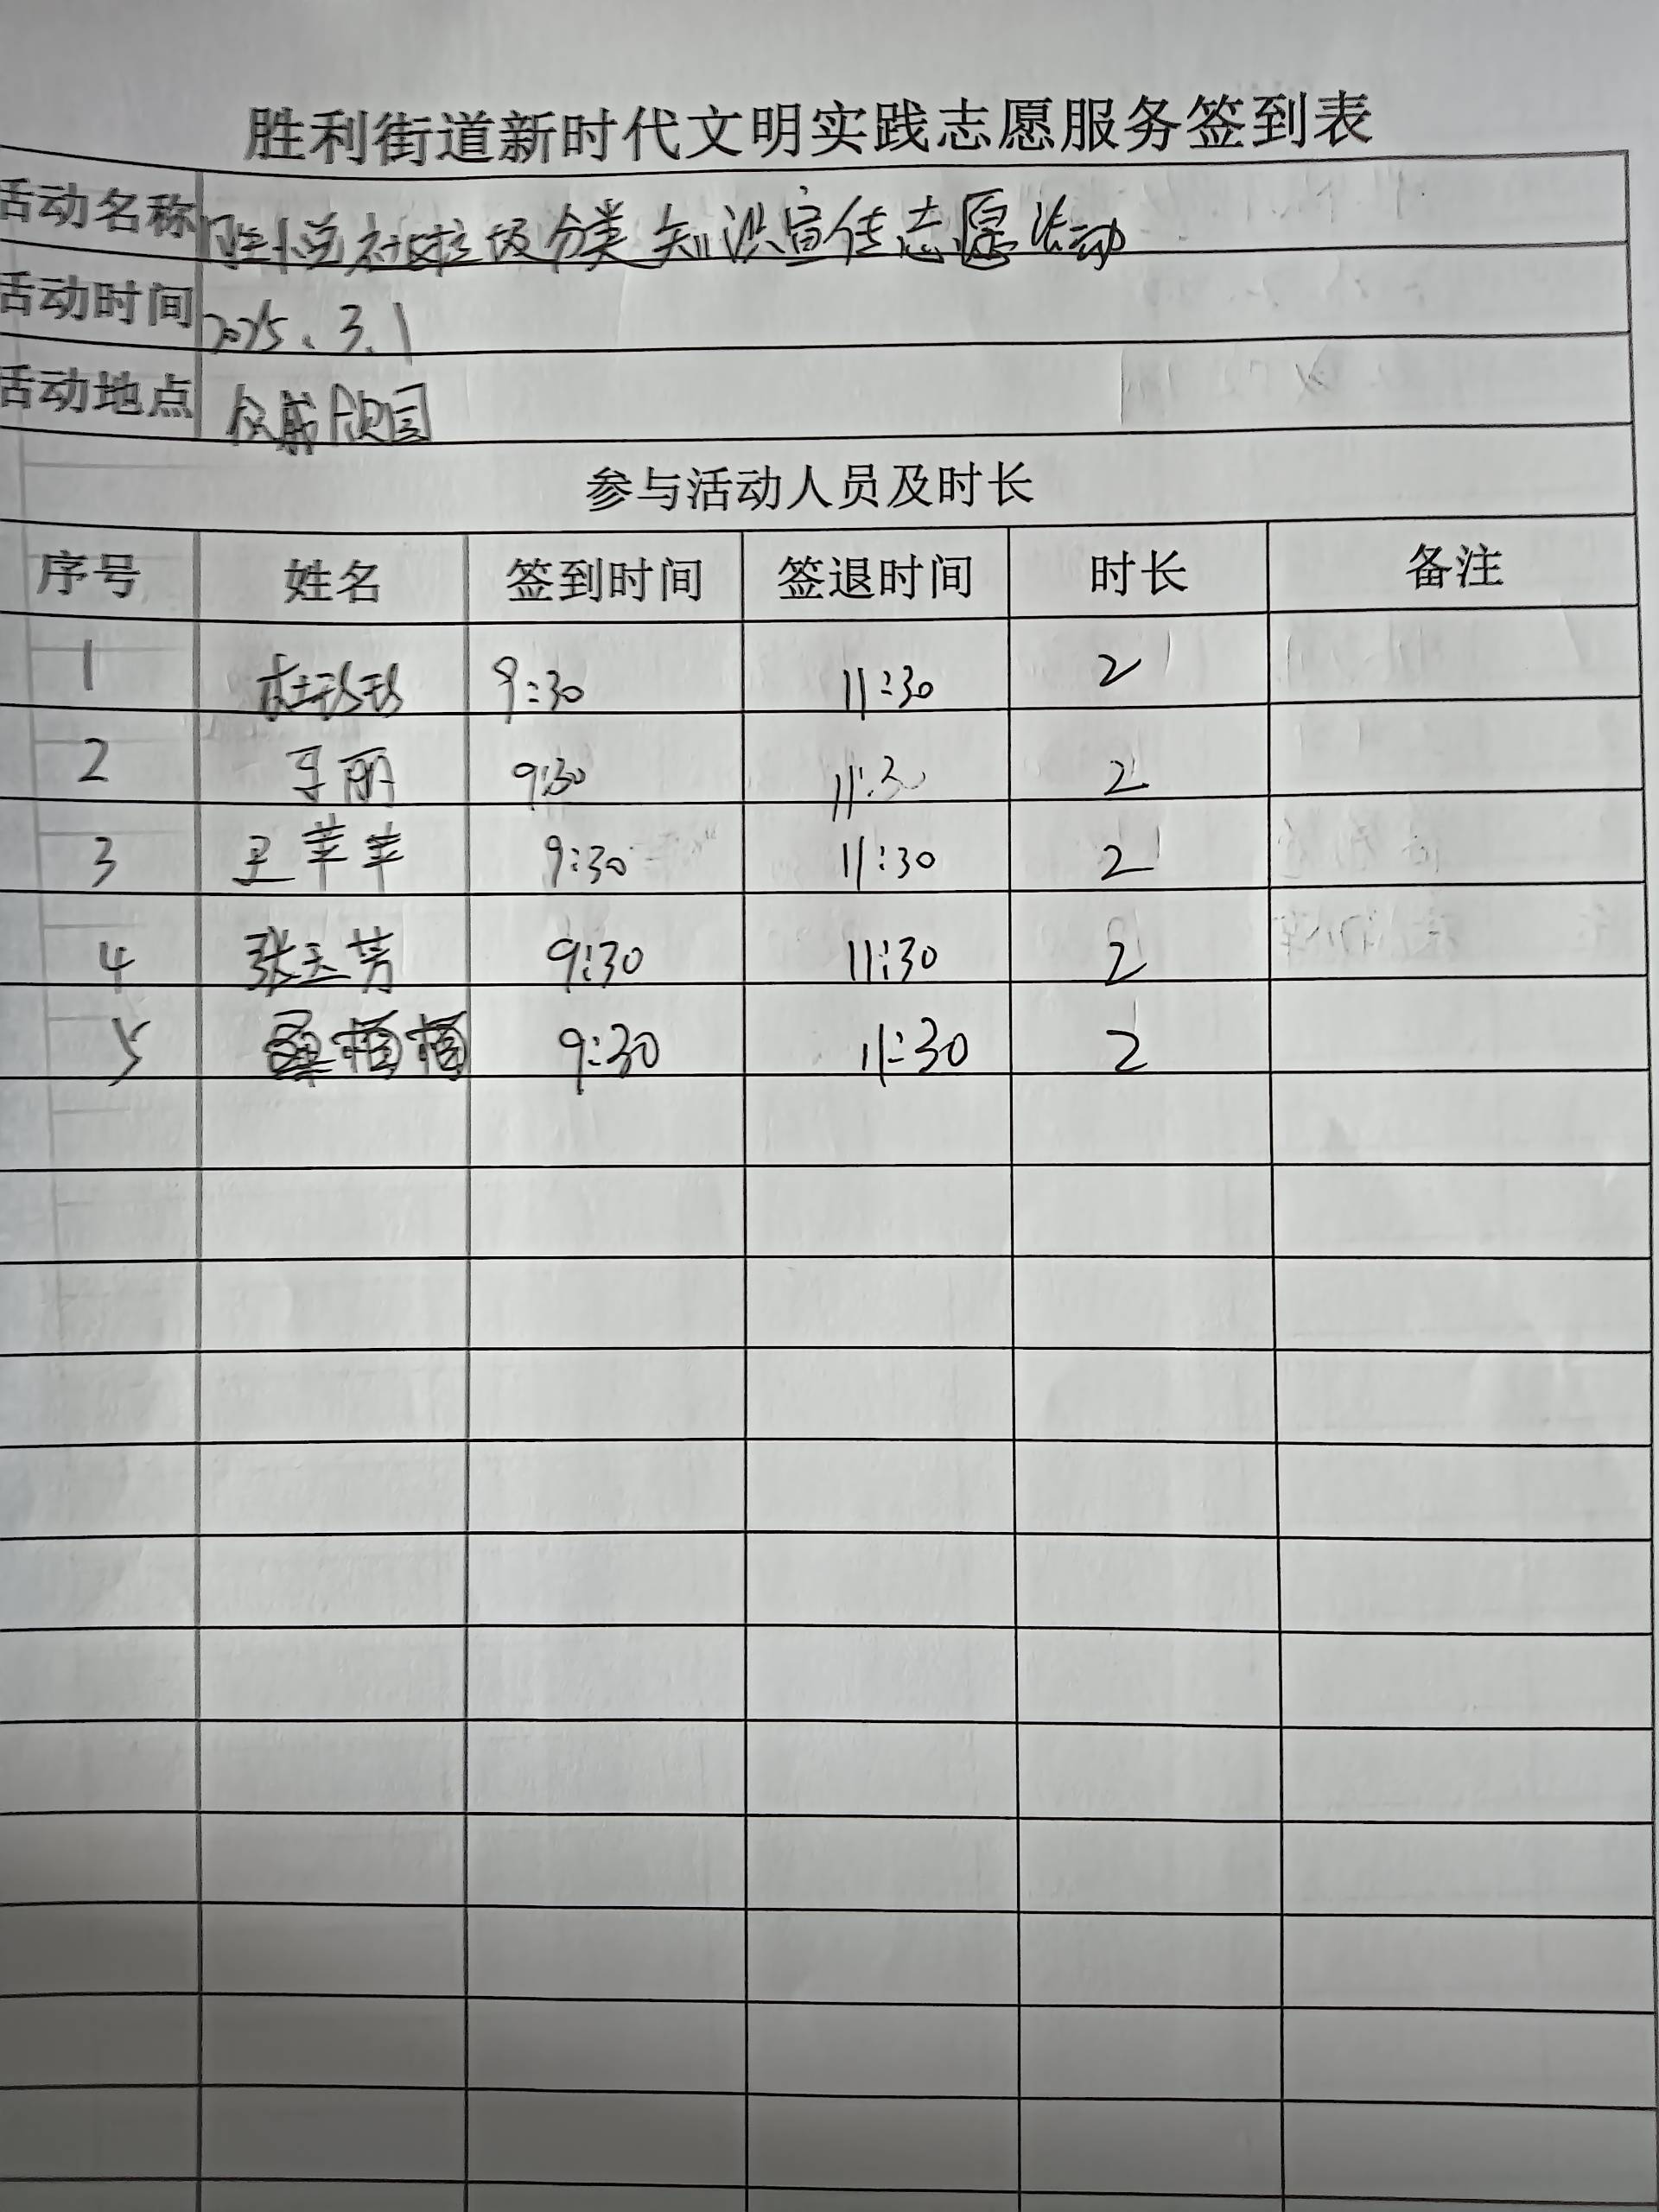 胜利街道新时代文明实践志愿服务签到表
活动名称 垃圾分类知识宣传志愿活动
活动时间 2025、3.1
活动地点
参与活动人员及时长
序号 姓名 签到时间 签退时间 时长 备注
1 杜珍珍 9:30 11:30 2
2 丽 9:30 11:30 2
3 王苹苹 9:30 11:30 2
4 张玉芳 9:30 11:30 2
5 9:30 11:30 2